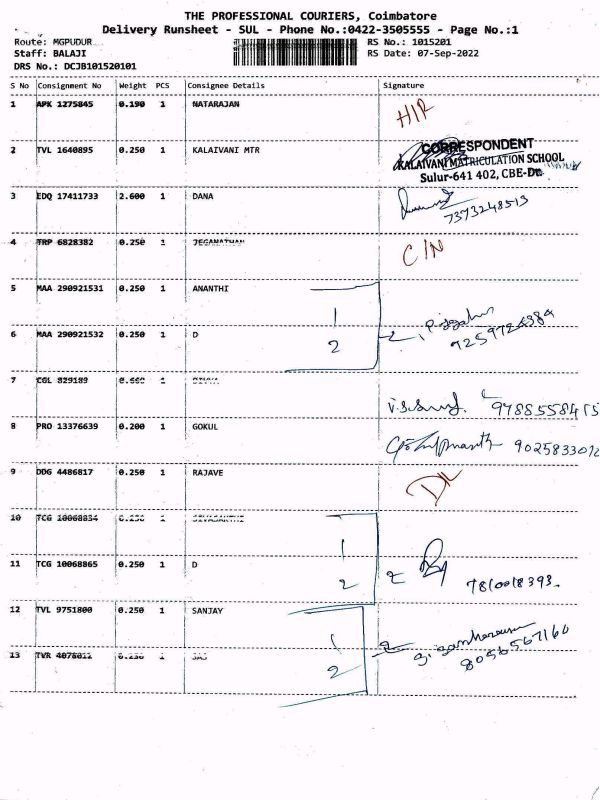 THE PROFESSIONAL COURIERS, Coimbatore
Delivery Runsheet - SUL - Phone No.:0422-3505555 - Page No.:1
Route: MGPUDUR RS No.: 1015201
Staff: BALAJI RS Date: 07-Sep-2022
DRS No.: DCJB101520101
S No Consignment No Weight PCS Consignee Details Signature
1 APK 1275845 0.190 1 NATARAJAN
CORRESPONDENT
2 TVL 1640895 0.250 1 KALAIVANI MTR KALAIVANI MATRICULATION SCHOOL
Sulur-641 402, CBE-Dt.
3 EDQ 17411733 2.600 1 DANA
7373248513
4 TRP 6828382 0.250 1 JEGANATHAN C/N
5 MAA 290921531 0.250 1 ANANTHI
1
6 MAA 290921532 0.250 1 D 2
7 CGL 829189 1
8 PRO 13376639 0.200 1 GOKUL
9 DDG 4486817 0.250 1 RAJAVE
10 TCG 1
1
11 TCG 10068865 0.250 1 D 2 2
7810018393
12 TVL 9751800 0.250 1 SANJAY
1
8056567160
13 TVR 1 2